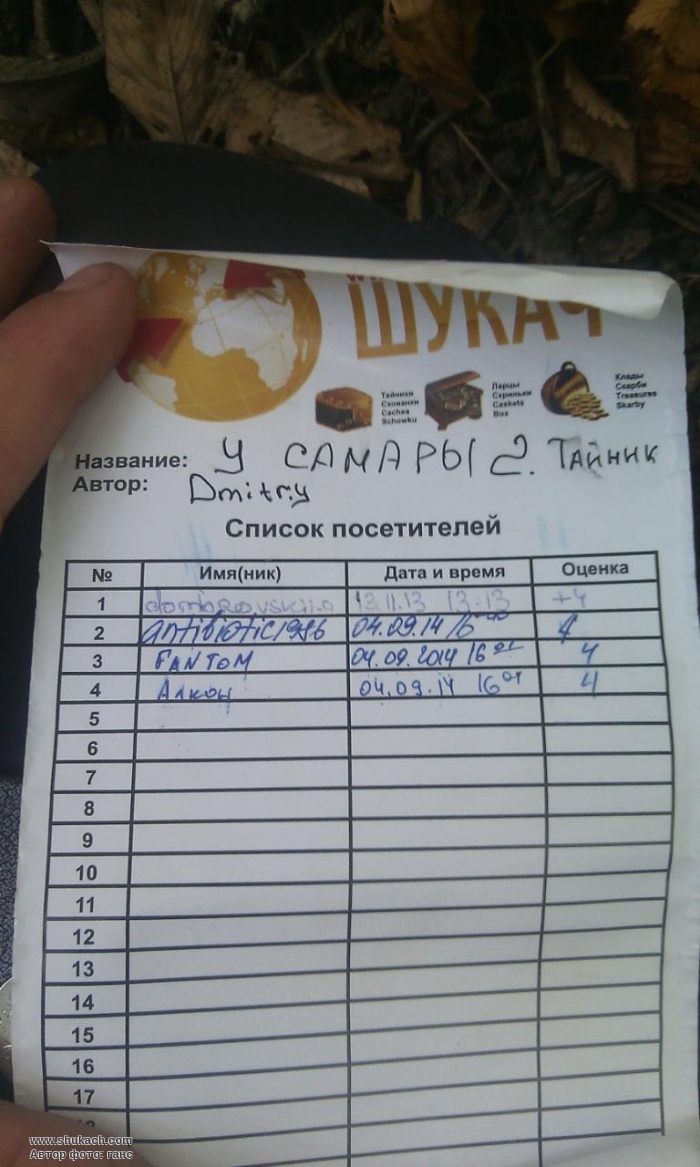 ШУКАЧ
Тайники
Схованки
Caches
Schowku
Ларцы
Скриньки
Caskets
Box
Клады
Скарби
Treasures
Skarby
Название: У САМАРЫ 2. Тайник
Автор: Dmitry
Список посетителей
№ Имя(ник) Дата и время Оценка
1 13.11.13 13:13 +4
2 antibiotic1986 04.09.14 16 4
3 FANTOM 04.09.2014 16 4
4 Алкон 04.09.14 16 4
5
6
7
8
9
10
11
12
13
14
15
16
17
www.shukach.com
Автор фото: ганс